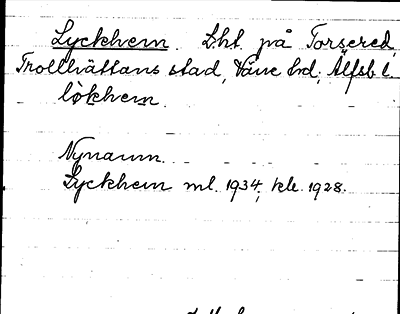 Lyckhem. Lht. på Torsered,
Trollhättans stad, Väne hd; Älfsb. l.
lòkhem.
Nynamn.
Lyckhem ml. 1934, kle. 1928.